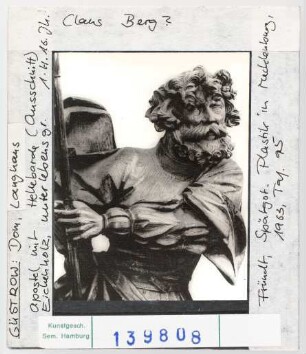 Claus Berg?
GÜSTROW: Dom, Langhaus
Apostel mit Hellebarde (Ausschnitt)
Eichenholz, unter lebensgr. 1. H. 16. Jh.
Fründt, Spätgot. Plastik in Mecklenburg,
1963, Taf. 95
Kunstgesch.
Sem. Hamburg
139808